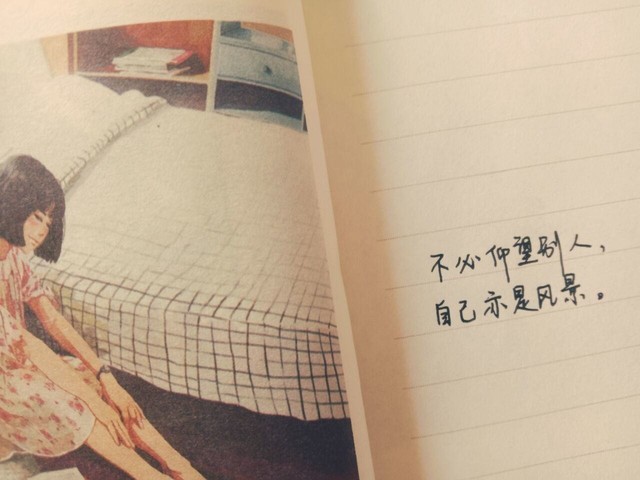 不必仰望别人，
自己亦是风景。